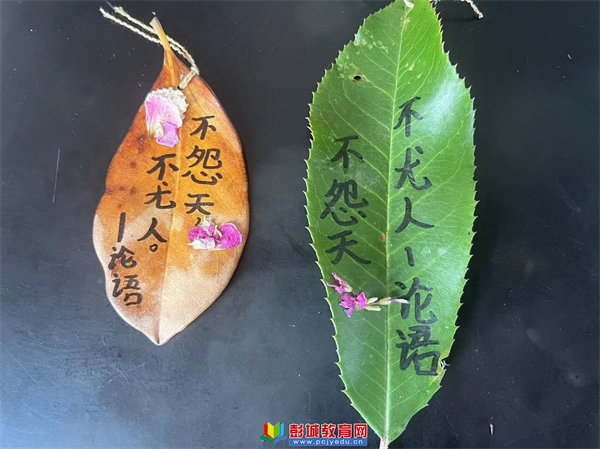 不怨天,
不尤人。
—论语
不怨天
不尤人—论语
彭城教育网
www.pcjyedu.cn